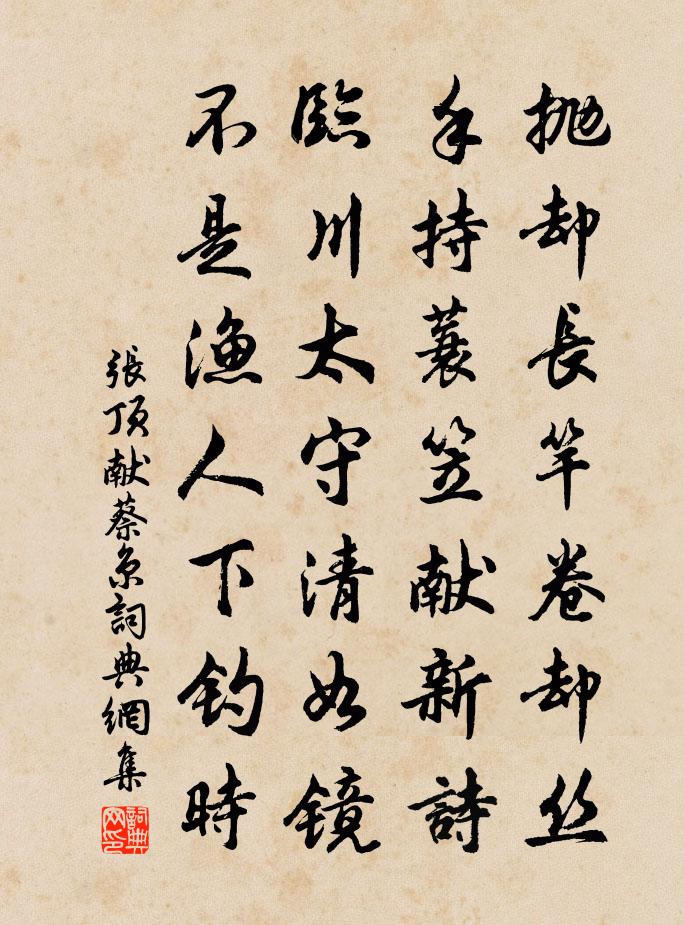 抛却長竿卷却丝
手持蓑笠献新詩
臨川太守清如镜
不是渔人下钓時
張顶献蔡京詞典網集
詞典网印